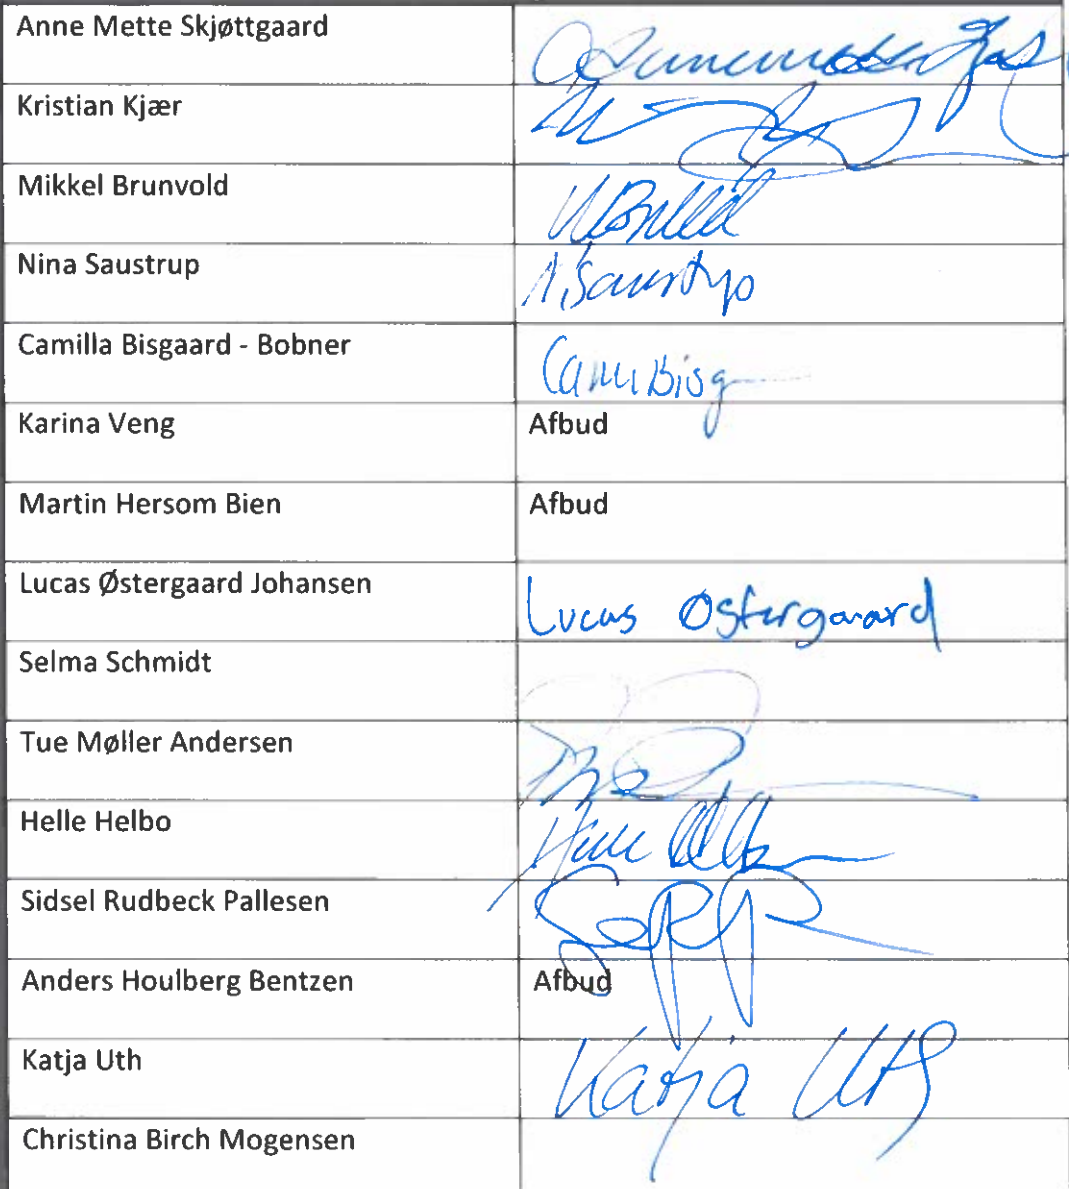 Anne Mette Skjøttgaard
Kristian Kjær
Mikkel Brunvold
Nina Saustrup N. Saustrup
Camilla Bisgaard - Bobner
Karina Veng Afbud
Martin Hersom Bien Afbud
Lucas Østergaard Johansen Lucas Østergaard
Selma Schmidt
Tue Møller Andersen
Helle Helbo
Sidsel Rudbeck Pallesen
Anders Houlberg Bentzen Afbud
Katja Uth Katja Uth
Christina Birch Mogensen